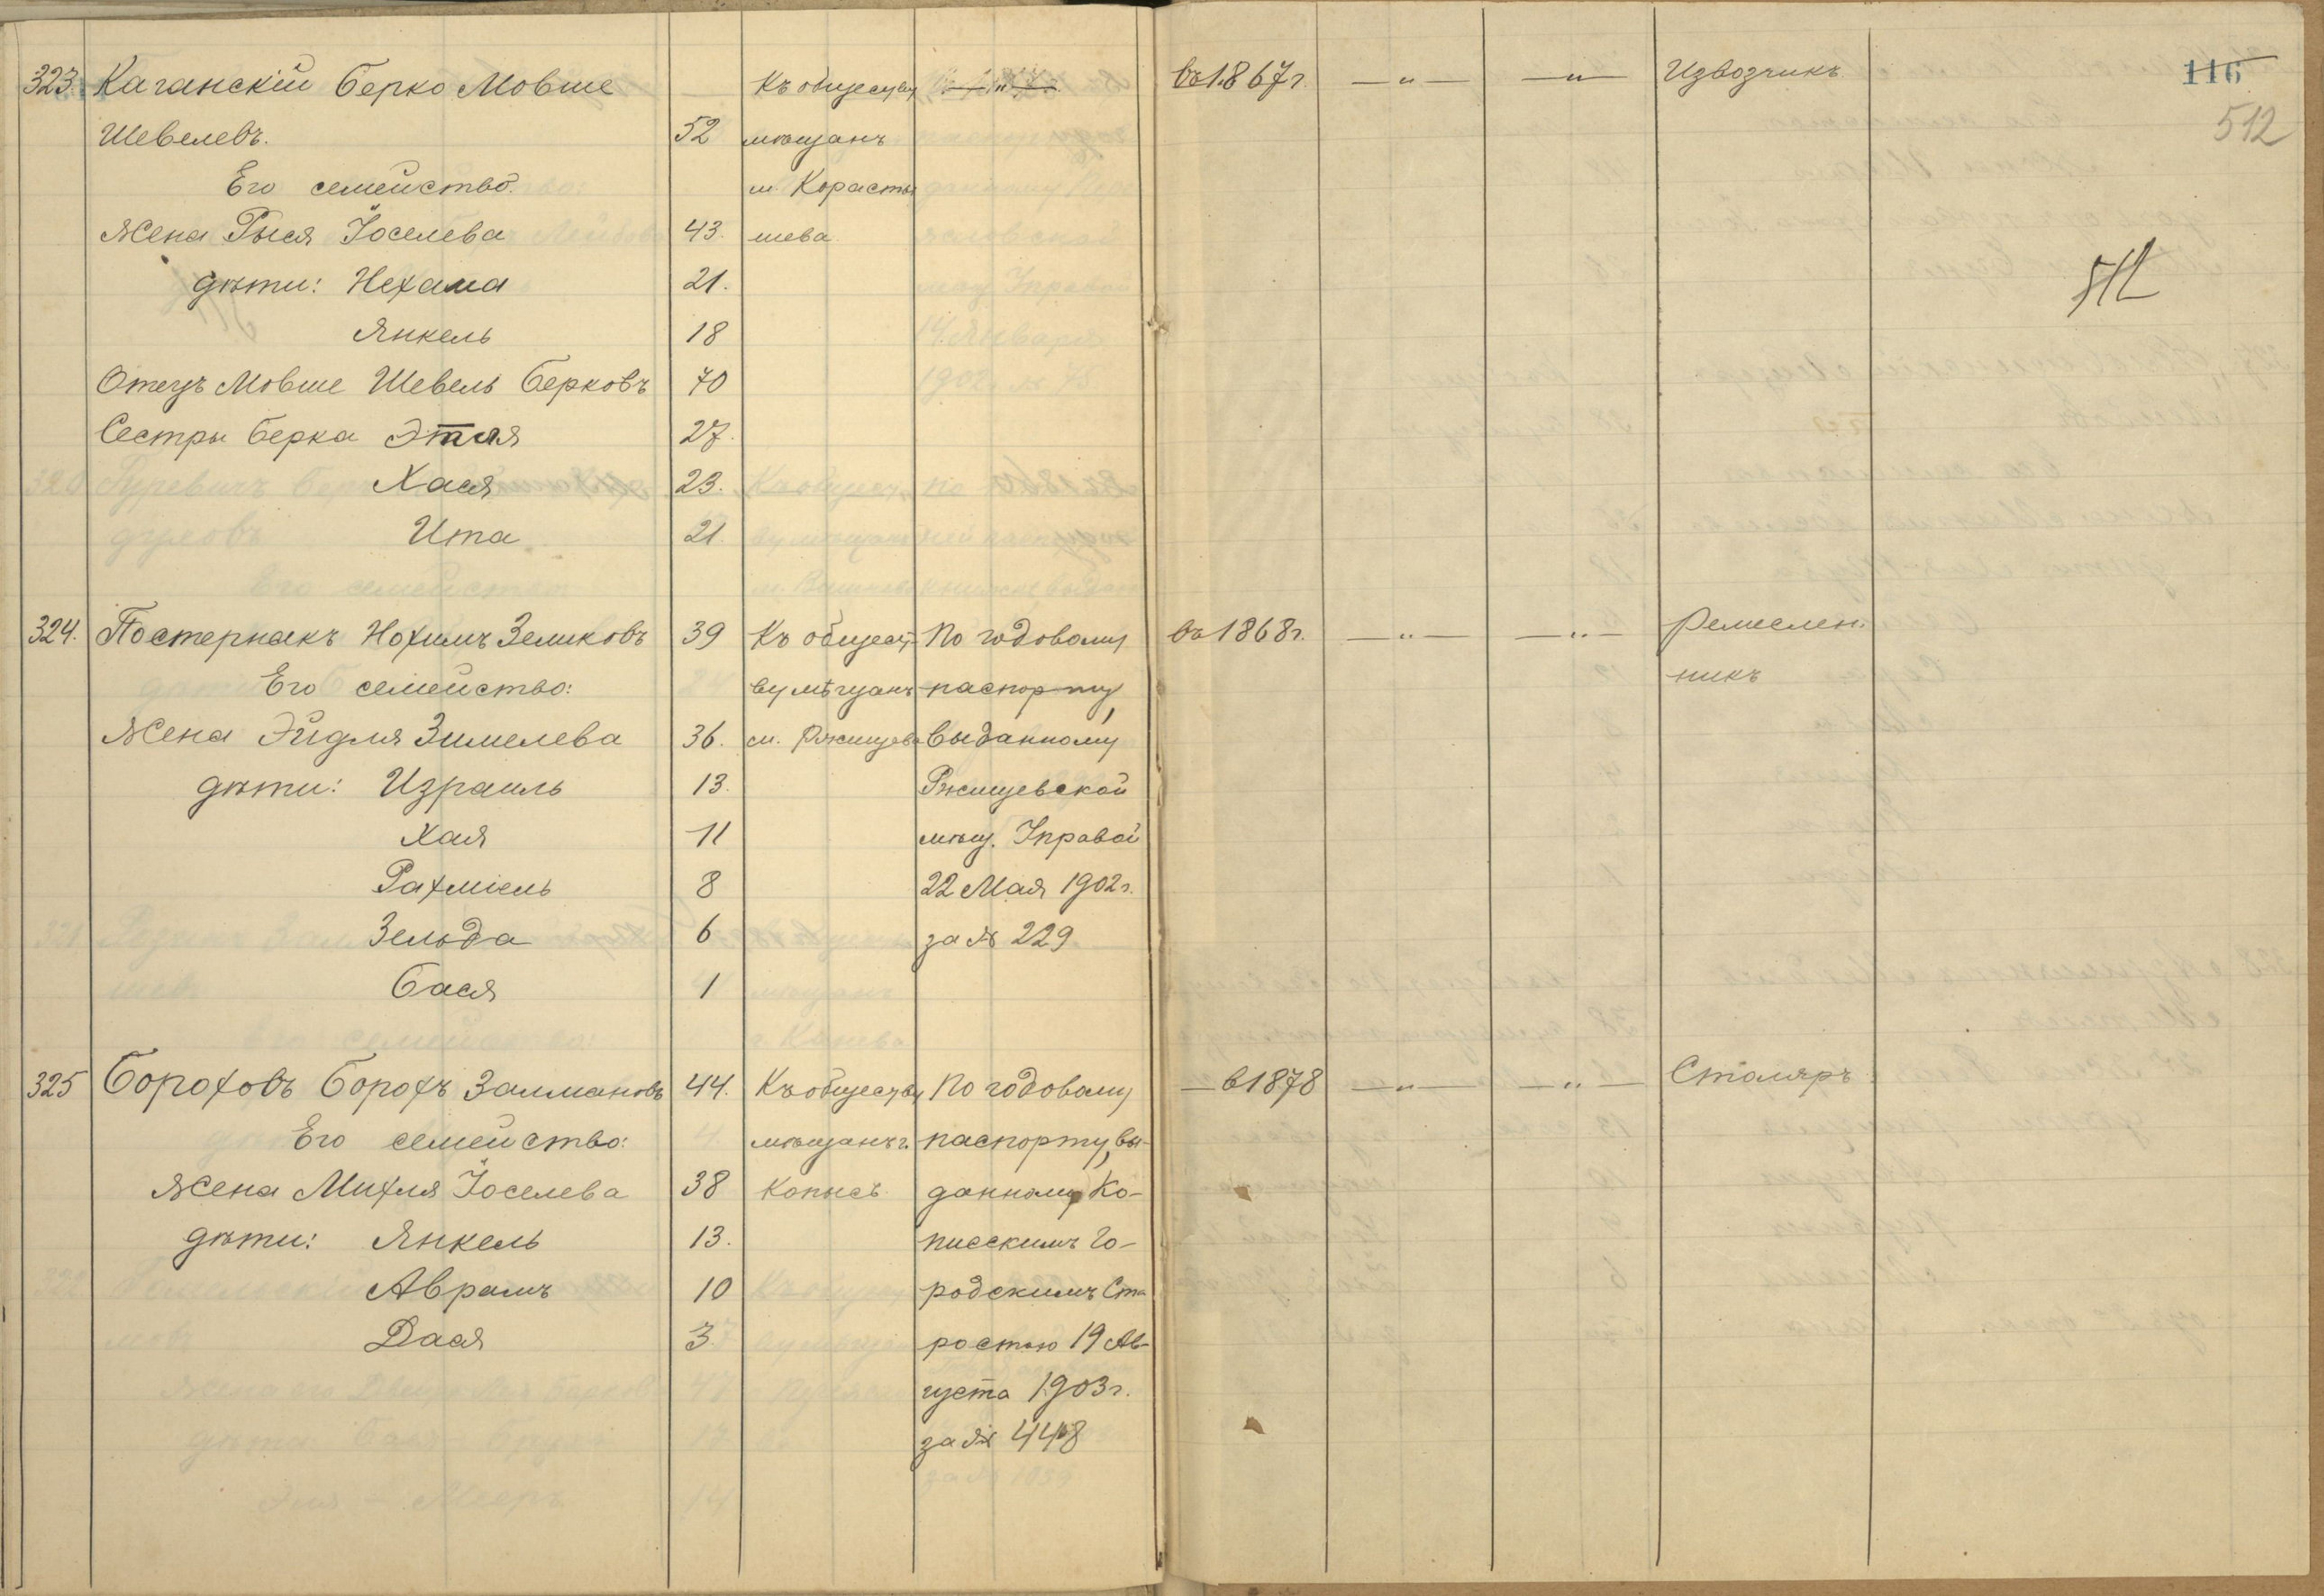 116
323. Каганскій Берко Мовше Къ обществу —"— въ 1867 г. —"— —"— Извозчикъ
512
Шевелевъ. 52 мѣщанъ
Его семейство. м. Корасты
Жена Рыся Іоселева 43. шева
512
дѣти: Нехама 21.
Янкель 18
Отецъ Мовше Шевель Берковъ 70
Сестры Берка Этля 27.
Хася 23.
Ита 21.
324. Постернакъ Нохимъ Зеликовъ 39 Къ общест- По годовому въ 1868 г. —"— —"— Ремеслен.
Его семейство: ву мѣщанъ паспорту, никъ
Жена Эйдля Зимелева 36. м. Ржищева выданному
дѣти: Израиль 13. Ржищевской
Хая 11 мѣщ. Управой
Рахміель 8 22 Мая 1902 г.
Зельда 6 за № 229
Бася 1
325 Бороховъ Борохъ Залмановъ 44. Къ обществу По годовому — в 1878 —"— —"— Столяръ
Его семейство: мѣщанъ г. паспорту, вы-
Жена Михля Іоселева 38 Копысь данному Ко-
дѣти: Янкель 13. писскимъ Го-
Аврамъ 10 родскимъ Ста
Дася 3. ростою 19 Ав-
густа 1903 г.
за № 448